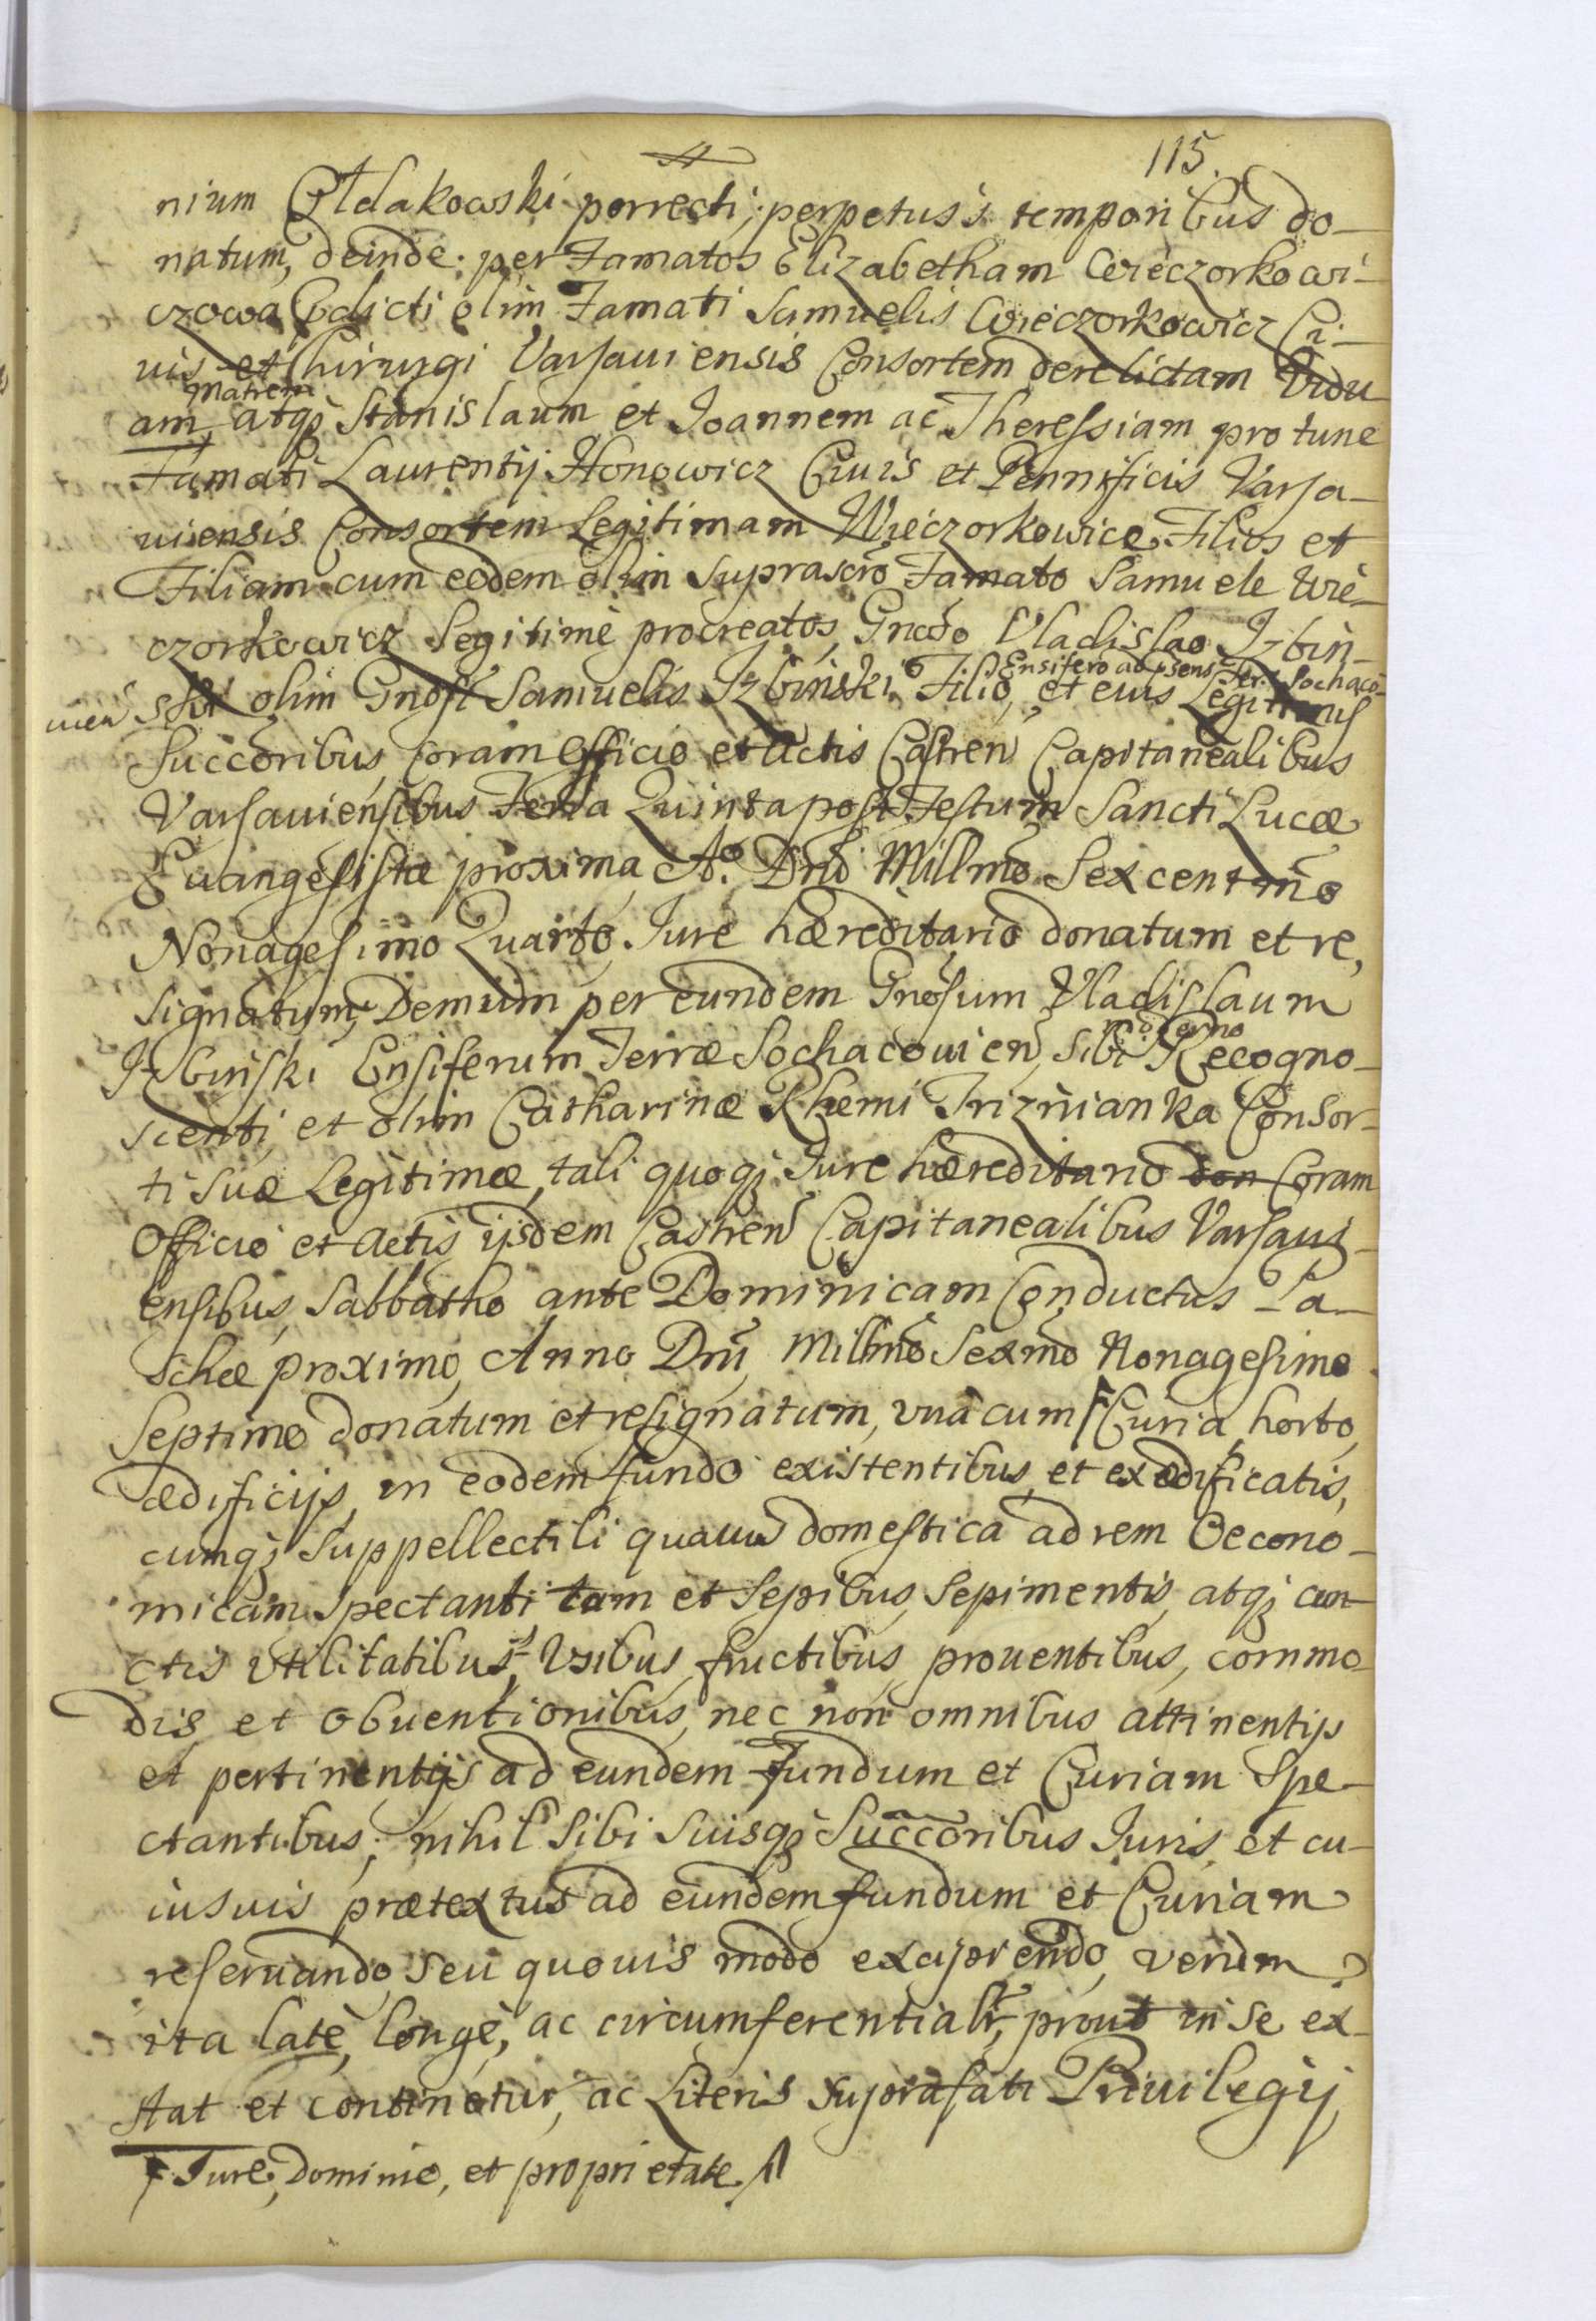 115.
nium Ołdakowski porrecti, perpetuis temporibus do-
natum, deinde per Famatos Elizabetham Wieczorkowi-
czowa olim Famati Samuelis Wieczorkowicz Ci-
uis et Chirurgi Varsauiensis Consortem derelictam Vidu
matrem
am, atq; Stanislaum et Joannem ac Theressiam pro tunc
Famati Laurentij Honowicz Ciuis et Pennificis Varsa-
uiensis Consortem Legitimam Wieczorkowicze Filios et
Filiam cum eodem olim suprascro Famato Samuele Wie-
czorkowicz legitime procreatos, Gnoso Vladislao Izbin-
Ensifero ad psens Terr. Sochaco-
uien ski olim Gnosi Samuelis Izbinski Filio, et eius Legitimis
Succoribus, coram Officio et Actis Castren Capitanealibus
Varsauiensibus Feria Quinta post Festum Sancti Lucæ
Euangelistæ proxima, Ao. Dni Millmo Sexcentmo
Nonagesimo Quarto, Iure hæreditario donatum et re,
signatum, Demum per eundem Gnosum Vladislaum
moderno
Izbinski Ensiferum Terræ Sochacouien, sibi Recogno-
scenti, et olim Catharinæ Rhemi Triznianka Consor-
ti suæ Legitimæ, tali quoq; Iure hæreditario don Coram
Officio et Actis ijsdem Castren Capitanealibus Varsaui-
ensibus, Sabbatho ante Dominicam Conductus Pa-
schæ proximo, Anno Dni Millmo Sexmo Nonagesimo
Septimo donatum et resignatum, vna cum Curia, horto,
ædificijs, in eodem fundo existentibus, et exædificatis,
cumq; Suppellectili quauis domestica ad rem Oecono-
micam spectanti tam et Sepibus, Sepimentis, atq; cun-
ctis vtilitatibus, Vsibus, fructibus, prouentibus, commo-
dis, et obuentionibus, nec non omnibus attinentijs
et pertinentijs ad eundem Fundum et Curiam spe-
ctantibus; nihil sibi suisq; Succoribus Iuris, et cu-
iusuis prætextus ad eundem fundum et Curiam
reseruando, seu quouis modo excipiendo, verum
ita late, longe, ac circumferentialr, prout in se ex-
stat et continetur, ac Literis suprafati Priuilegij
Iure, Dominio, et proprietate